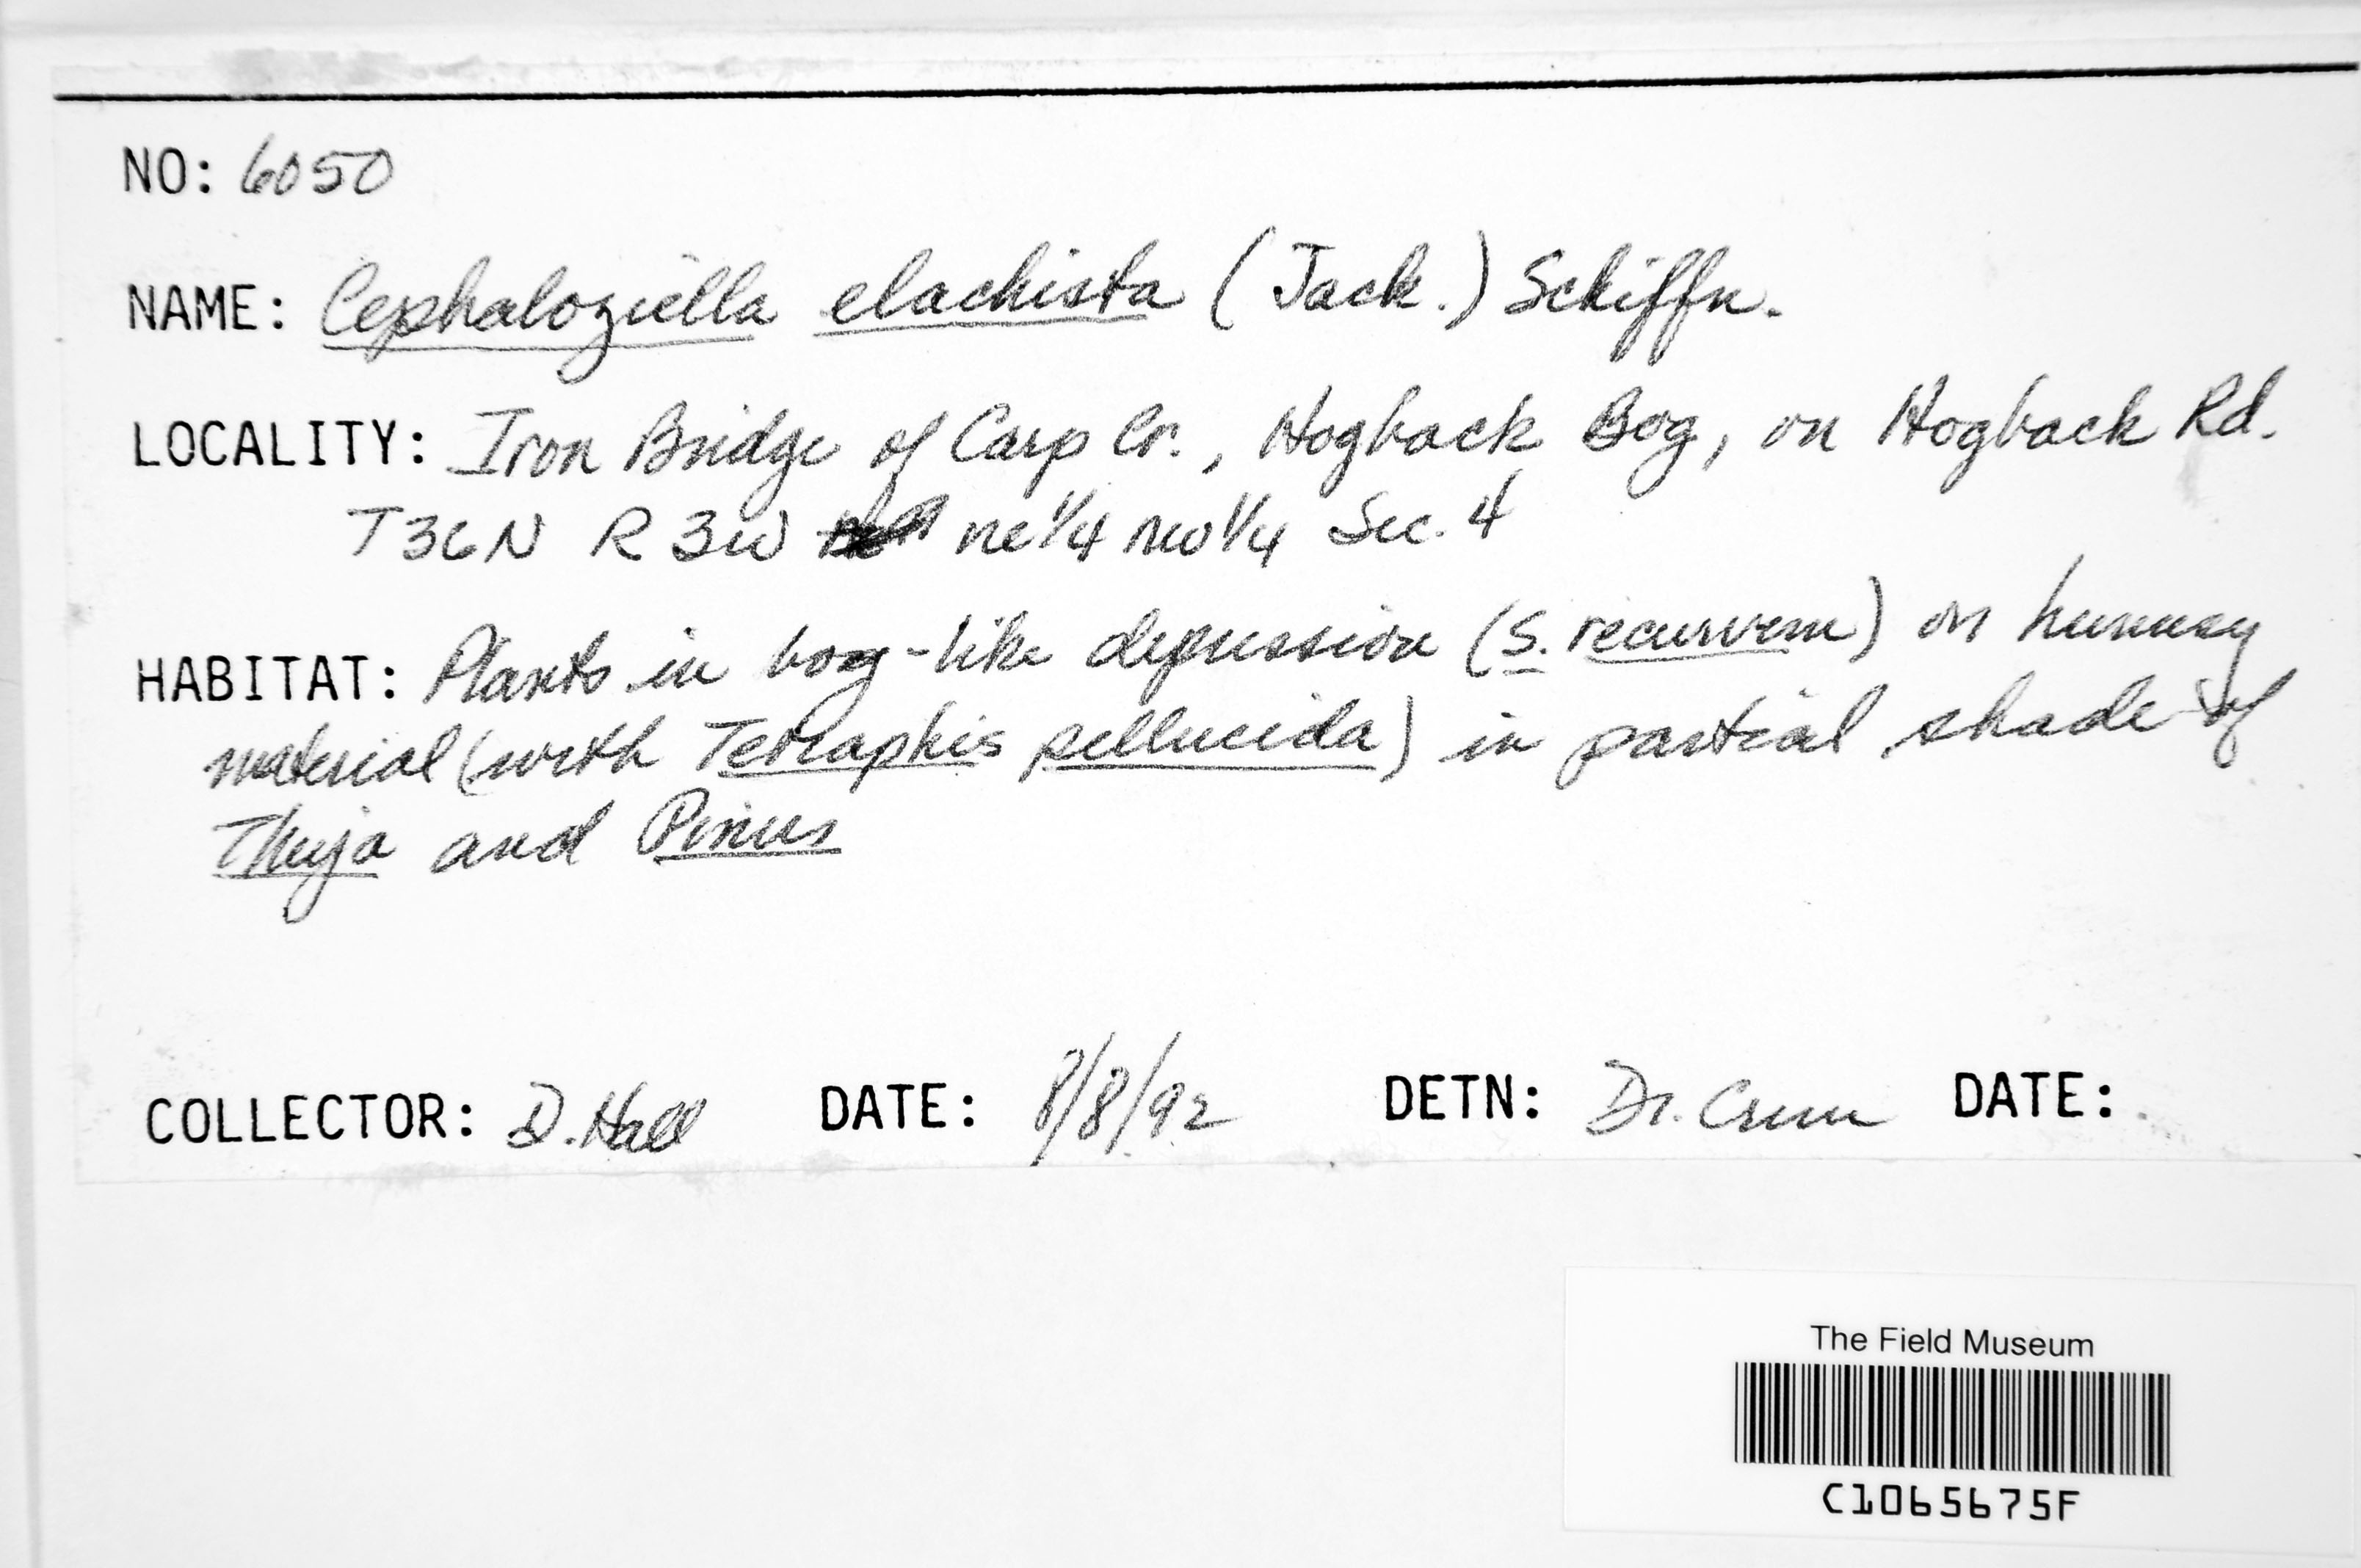 NO: 6050
NAME: Cephaloziella elachista (Jack.) Schiffn.
LOCALITY: Iron Bridge of Carp Cr., Hogback Bog, on Hogback Rd.
T36N R3W ne¼ nw¼ Sec. 4
HABITAT: Plants in bog-like depression (S. recurvum) on hummy
material (with Tetraphis pellucida) in partial shade of
Thuja and Pinus
COLLECTOR: D. Hall DATE: 8/8/92 DETN: Dr. Crum DATE:
The Field Museum
C1065675F